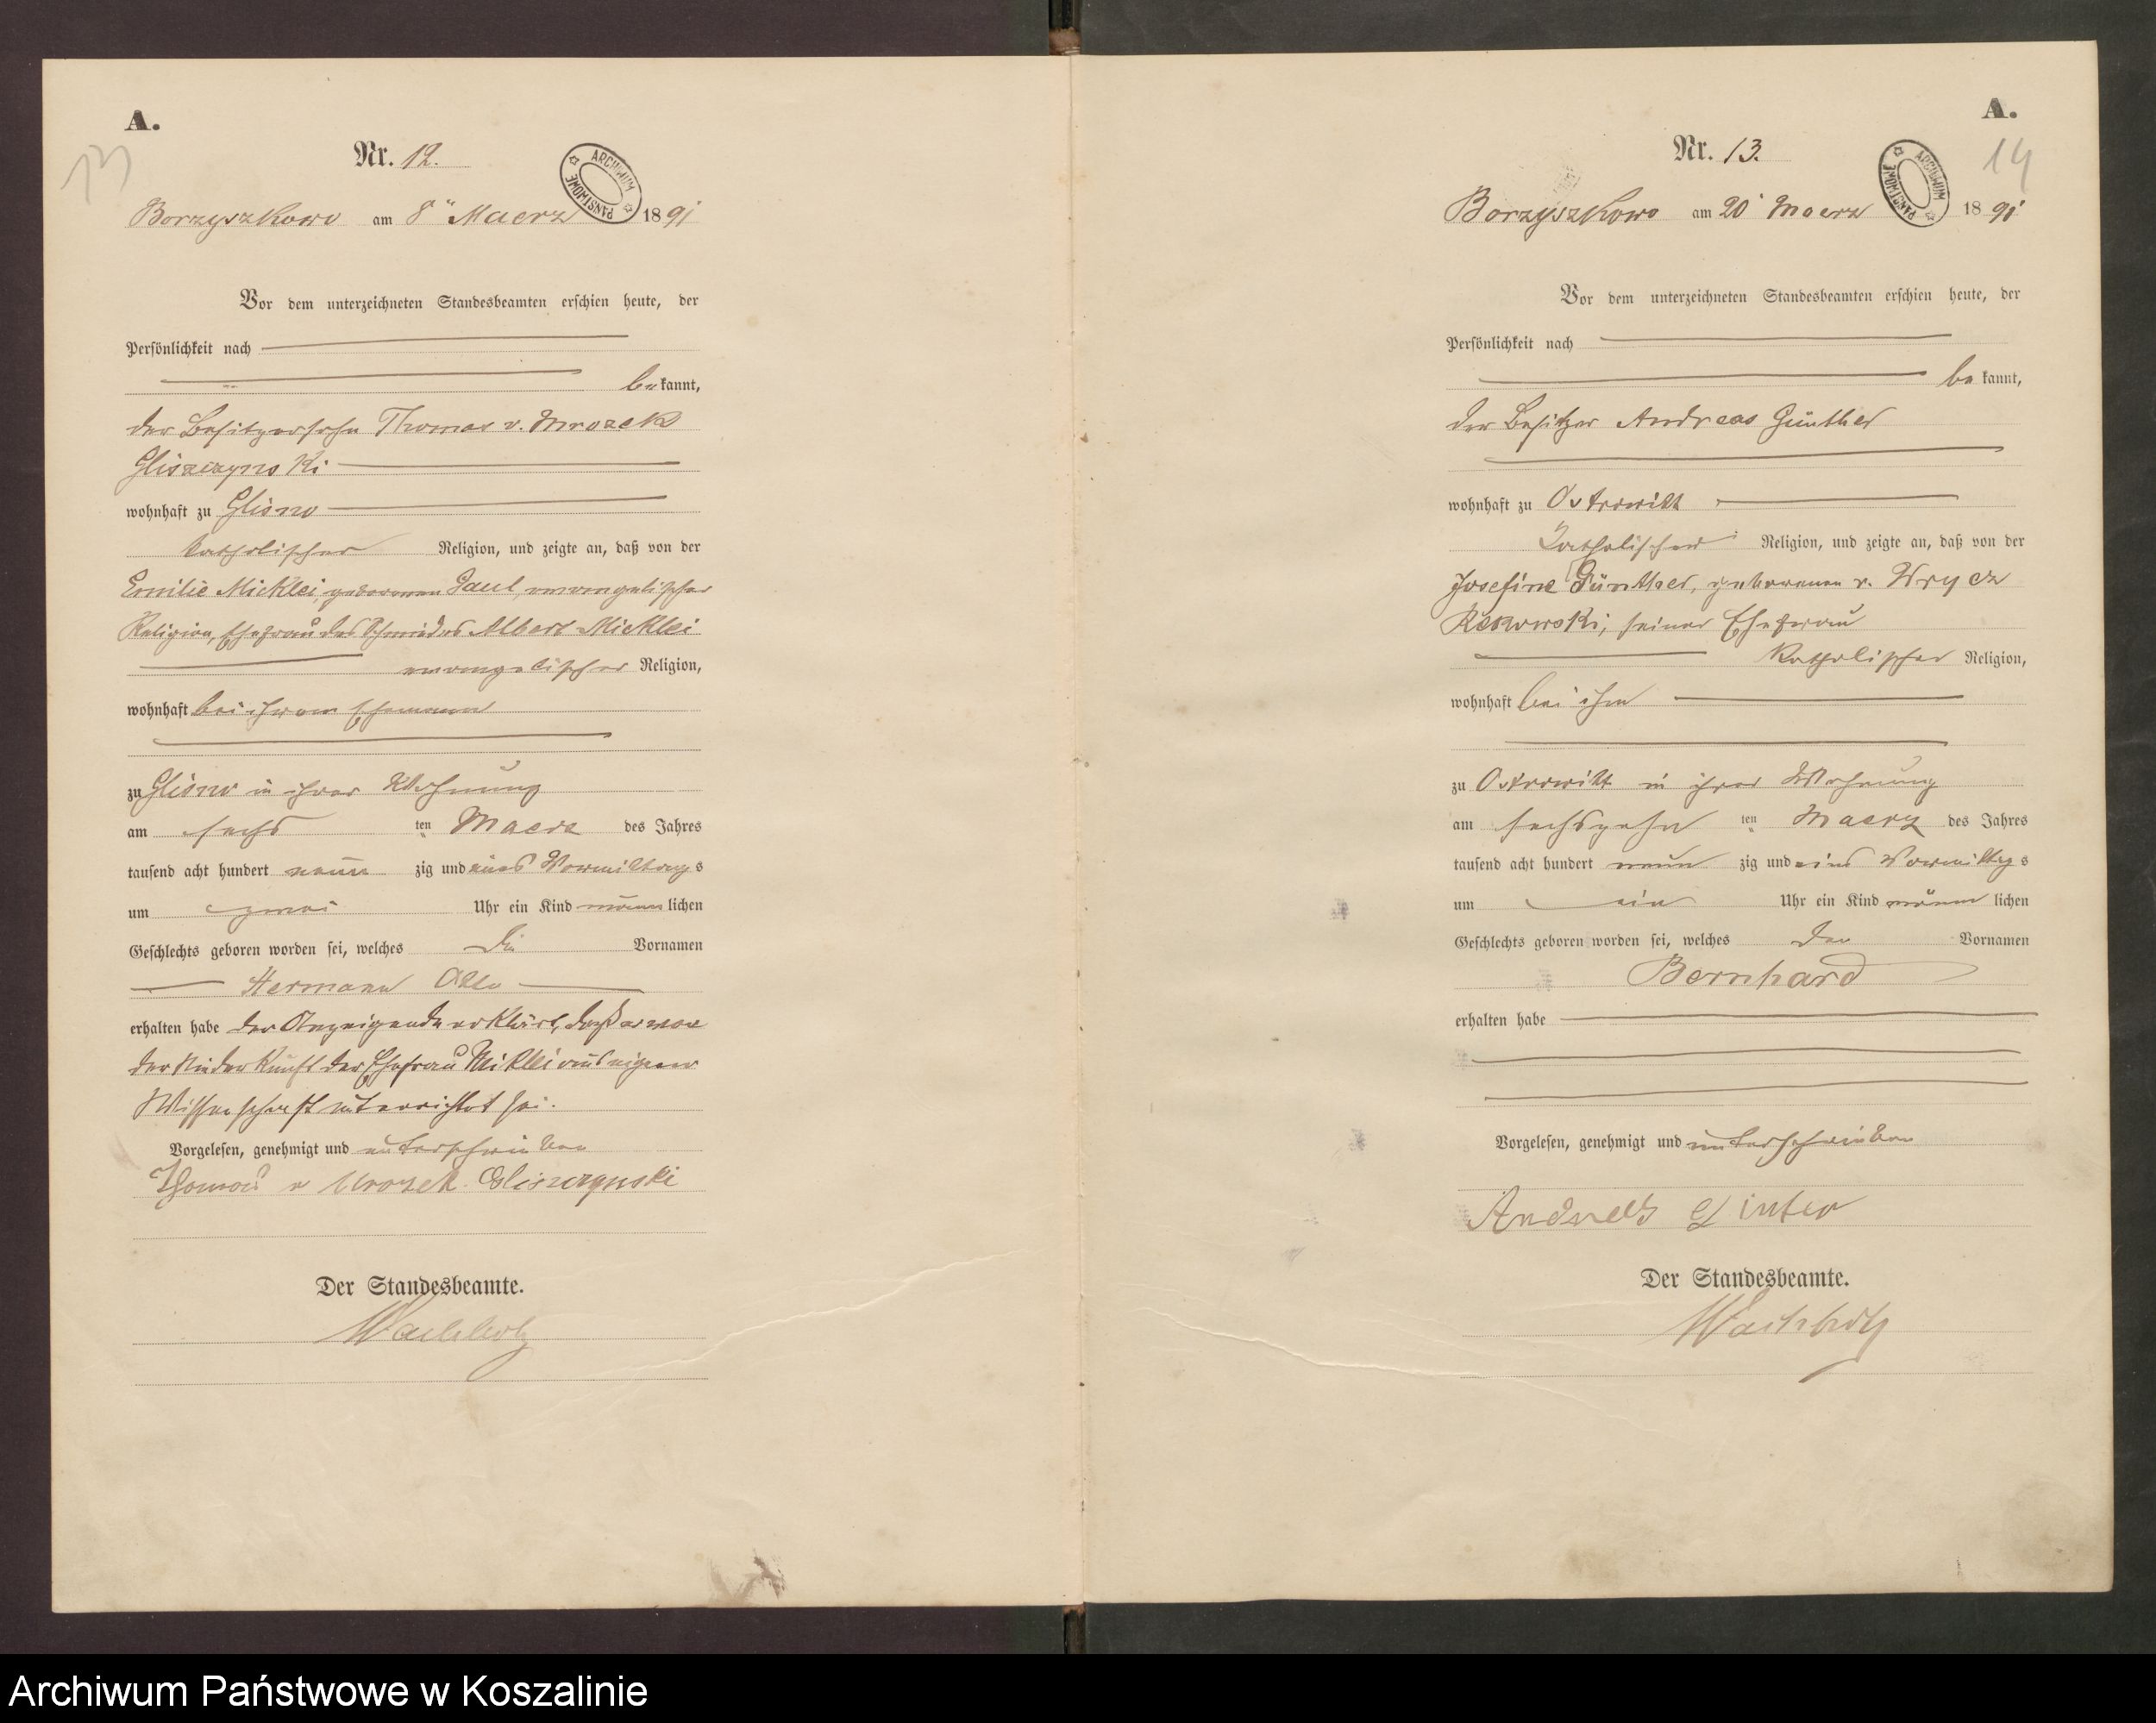 A.
13
Nr. 12.
ARCHIWUM PAŃSTWOWE
Borzyszkowo am 8ten Maerz 1891
Vor dem unterzeichneten Standesbeamten erschien heute, der
Persönlichkeit nach
bekannt,
der Besitzersohn Thomas v. Mrozek
Gliszczynski
wohnhaft zu Glisno
katholischer Religion, und zeigte an, daß von der
Emilie Micklei, geborenen Paul, evangelischer
Religion, Ehefrau des Schmiedes Albert Micklei
evangelischer Religion,
wohnhaft bei ihrem Ehemann
zu Glisno in ihrer Wohnung
am sechs ten Maerz des Jahres
tausend acht hundert neun zig und eins Vormittags
um zwei Uhr ein Kind männlichen
Geschlechts geboren worden sei, welches die Vornamen
Hermann Otto
erhalten habe der Anzeigende erklärt, daß er von
der Niederkunft der Ehefrau Miklei aus eigener
Wissenschaft unterrichtet sei.
Vorgelesen, genehmigt und unterschrieben
Thomas v Mrozek Gliszczynski
Der Standesbeamte.
Wachholz
A.
14
Nr. 13.
ARCHIWUM PAŃSTWOWE
Borzyszkowo am 20 Maerz 1891
Vor dem unterzeichneten Standesbeamten erschien heute, der
Persönlichkeit nach
bekannt,
der Besitzer Andreas Günther
wohnhaft zu Ostrowitt
katholischer Religion, und zeigte an, daß von der
Josefine Günther, geborenen v. Wrycz
Rekowski, seiner Ehefrau
katholischer Religion,
wohnhaft bei ihm
zu Ostrowitt in ihrer Wohnung
am sechszehn ten Maerz des Jahres
tausend acht hundert neun zig und eins Vormittags
um ein Uhr ein Kind männlichen
Geschlechts geboren worden sei, welches den Vornamen
Bernhard
erhalten habe
Vorgelesen, genehmigt und unterschrieben
Andreas Ginter
Der Standesbeamte.
Wachholz
Archiwum Państwowe w Koszalinie